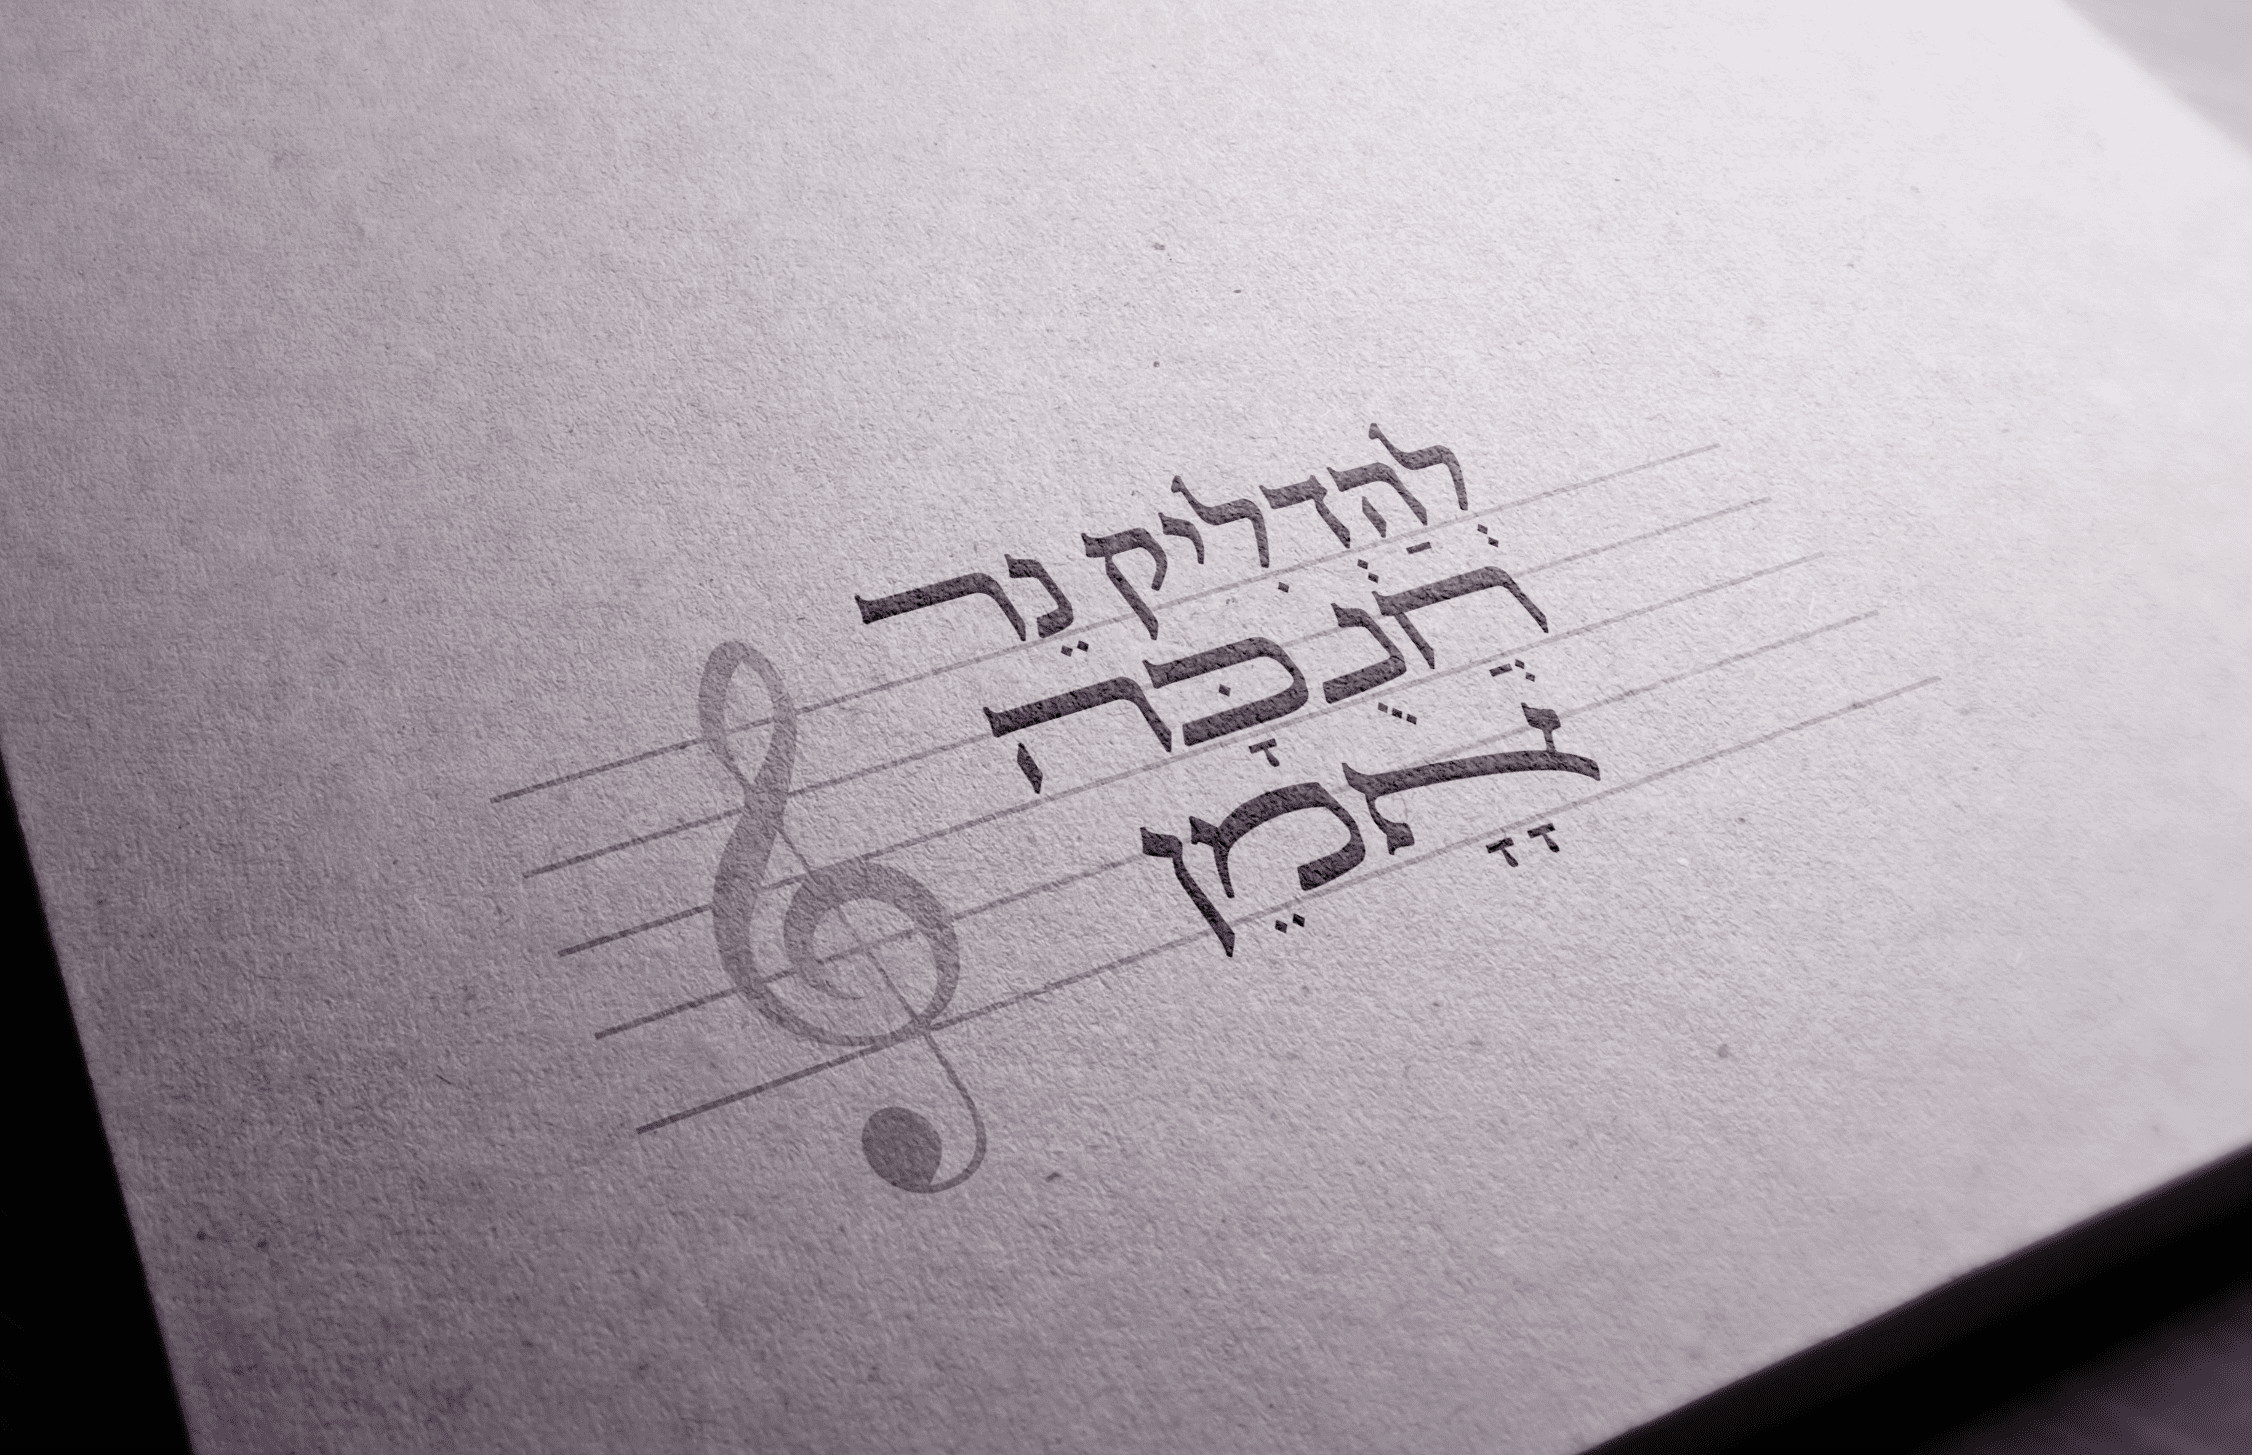 לְהַדְלִיק נֵר
חֲנֻכָּה
אָָמֵן